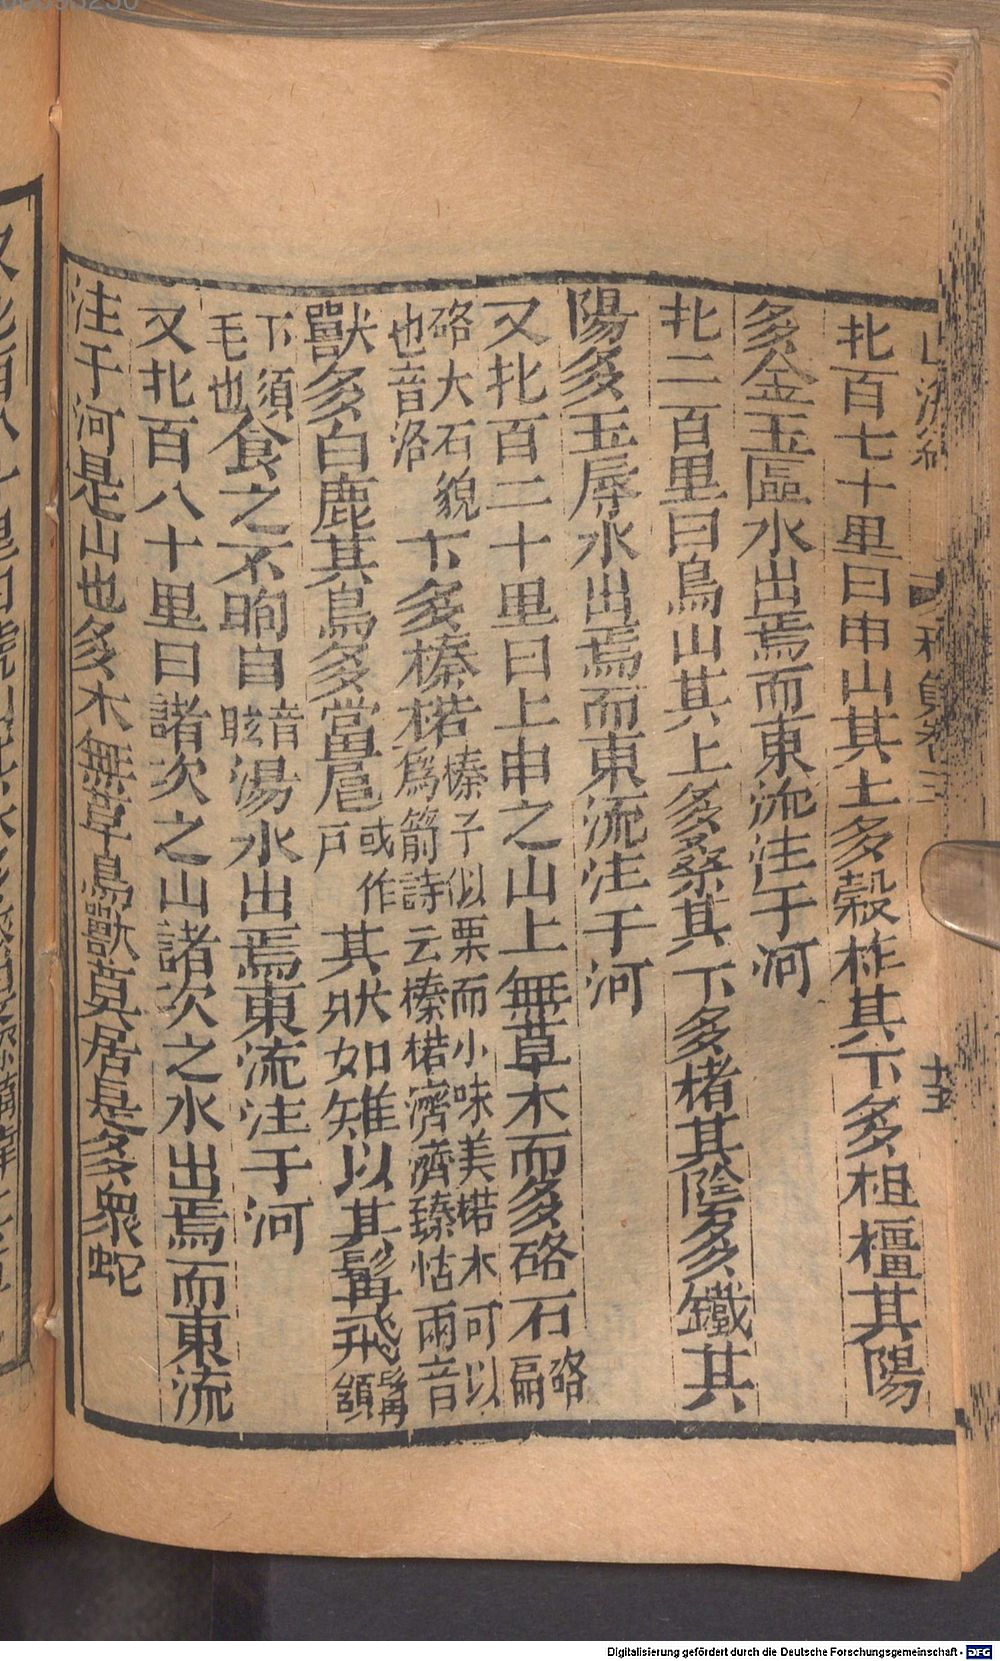 北百七十里曰申山其上多榖柞其下多杻橿其陽
多金玉區水出焉而東流注于河
北二百里曰鳥山其上多桑其下多楮其陰多鐵其
陽多玉辱水出焉而東流注于河
又北百二十里曰上申之山上無草木而多硌石硌磊
硌大石貌
也音洛下多榛楛榛子似栗而小味美楛木可以
爲箭詩云榛楛濟濟臻怙兩音
獸多白鹿其鳥多當扈或作
戶其狀如雉以其髯飛髯頷
下須
毛也食之不眴目音
眩湯水出焉東流注于河
又北百八十里曰諸次之山諸次之水出焉而東流
注于河是山也多木無草鳥獸莫居是多衆蛇
Digitalisierung gefördert durch die Deutsche Forschungsgemeinschaft - DFG